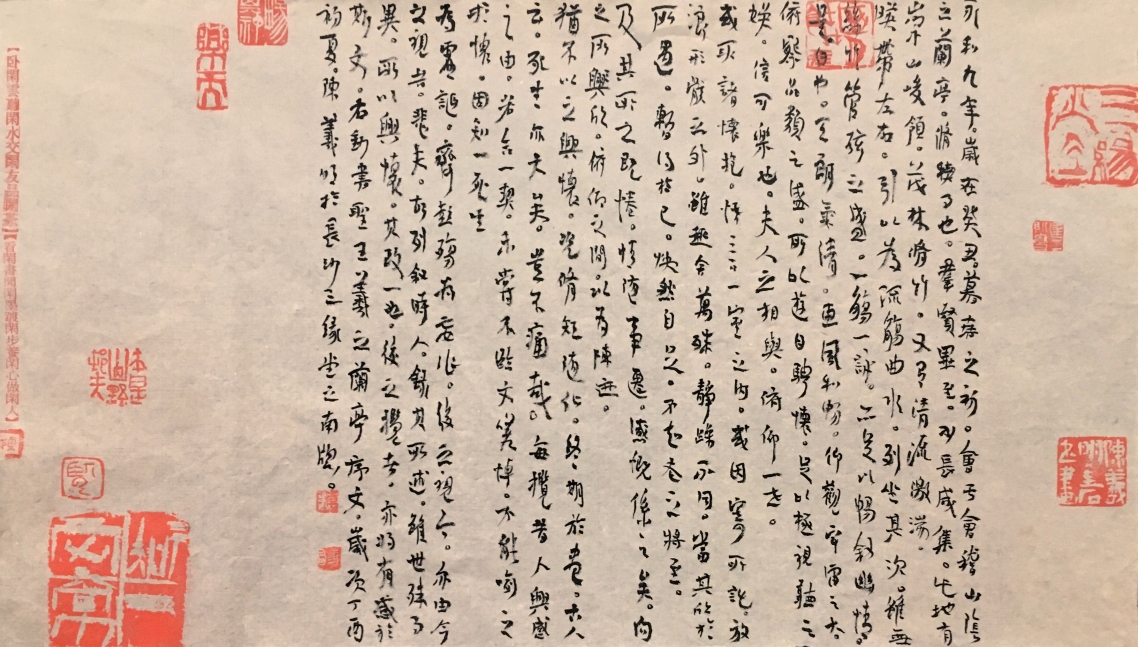 永和九年。歲在癸丑。暮春之初。會于會稽山陰
之蘭亭。脩稧事也。羣賢畢至。少長咸集。此地有
崇山峻領。茂林脩竹。又有清流激湍。
暎帶左右。引以為流觴曲水。列坐其次。雖無
絲竹管弦之盛。一觴一詠。亦足以暢敘幽情。
是日也。天朗氣清。惠風和暢。仰觀宇宙之大。
俯察品類之盛。所以遊目騁懷。足以極視聽之
娛。信可樂也。夫人之相與。俯仰一世。
或取諸懷抱。悟言一室之內。或因寄所託。放
浪形骸之外。雖趣舍萬殊。靜躁不同。當其欣於
所遇。暫得於己。快然自足。不知老之將至。
及其所之既惓。情隨事遷。感慨係之矣。向
之所興欣。俯仰之間。以為陳迹。
猶不以之興懷。況脩短隨化。終期於盡。古人
云。死生亦大矣。豈不痛哉。每攬昔人興感
之由。若合一契。未嘗不臨文嗟悼。不能喻之
於懷。固知一死生
為虛誕。齊彭殤為妄作。後之視今。亦由今
之視昔。悲夫。故列敘時人。錄其所述。雖世殊事
異。所以興懷。其致一也。後之攬者。亦將有感於
斯文。右勤書聖王羲之蘭亭序文。歲次丁酉
初夏。陳義明於長沙三緣堂之南牕。
本是山野村夫